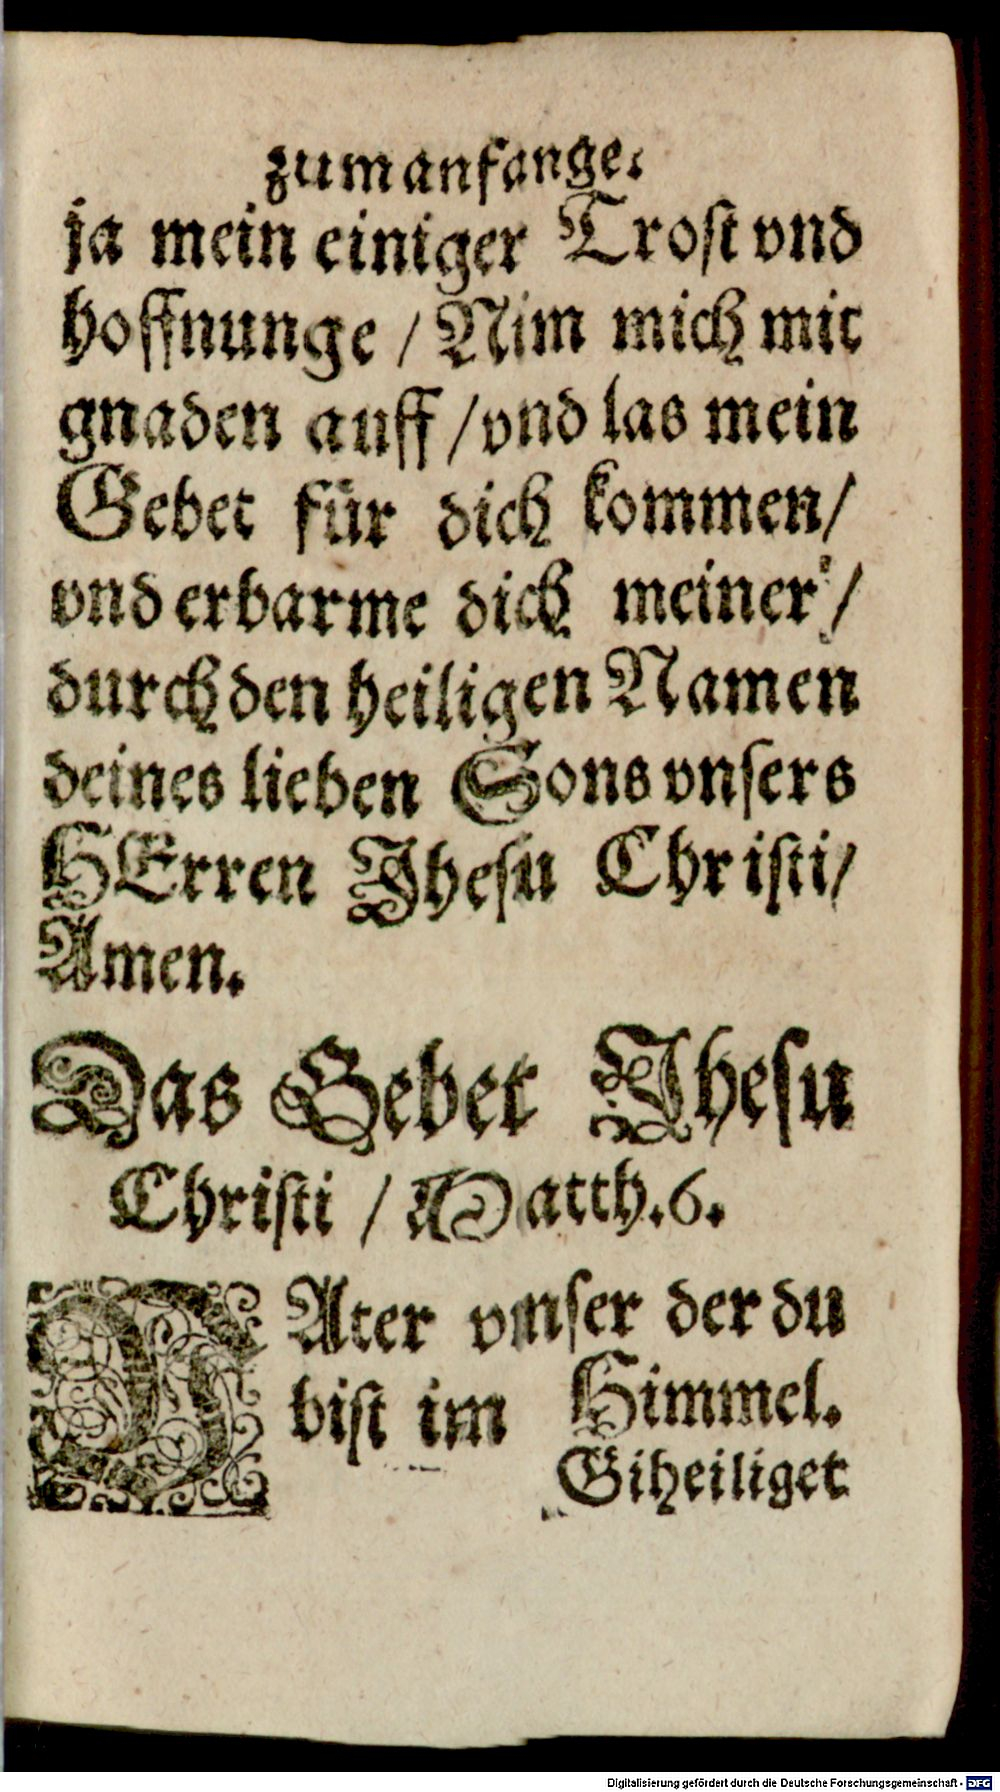 zum anfange.
ja mein einiger Trost vnd
hoffnunge / Nim mich mit
gnaden auff / vnd las mein
Gebet für dich kommen /
vnd erbarme dich meiner /
durch den heiligen Namen
deines lieben Sons vnsers
HErren Jhesu Christi /
Amen.
Das Gebet Jhesu
Christi / Matth. 6.
VAter vnser der du
bist im Himmel.
Giheiliget
Digitalisierung gefördert durch die Deutsche Forschungsgemeinschaft - DFG